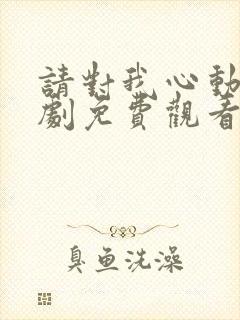 請對我心動
劇免費觀看
臭魚洗澡